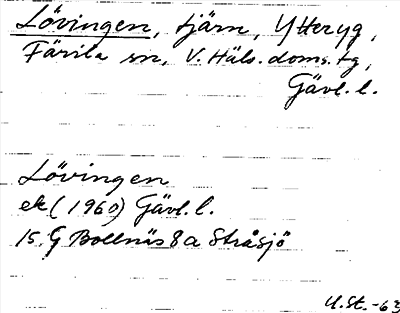 Lövingen, tjärn, Ytteryg,
Färila sn, V. Häls. doms. tg,
Gävl. l.
Lövingen
ek (1960) Gävl. l.
15 G Bollnäs 8 a Stråsjö
U. St. -63